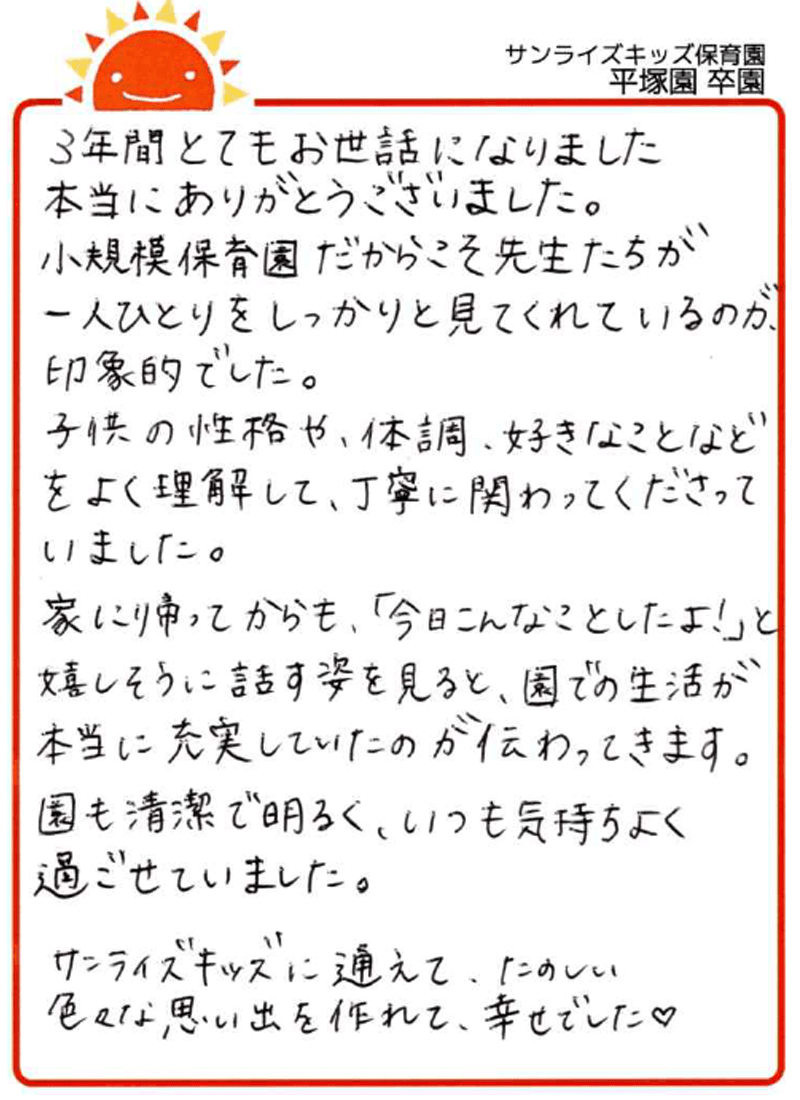 サンライズキッズ保育園
平塚園 卒園
3年間とてもお世話になりました
本当にありがとうございました。
小規模保育園だからこそ先生たちが
一人ひとりをしっかりと見てくれているのが、
印象的でした。
子供の性格や、体調、好きなことなど
をよく理解して、丁寧に関わってくださって
いました。
家に帰ってからも、「今日こんなことしたよ!」と
嬉しそうに話す姿を見ると、園での生活が
本当に充実していたのが伝わってきます。
園も清潔で明るく、いつも気持ちよく
過ごせていました。
サンライズキッズに通えて、たのしい
色々な思い出を作れて、幸せでした♡